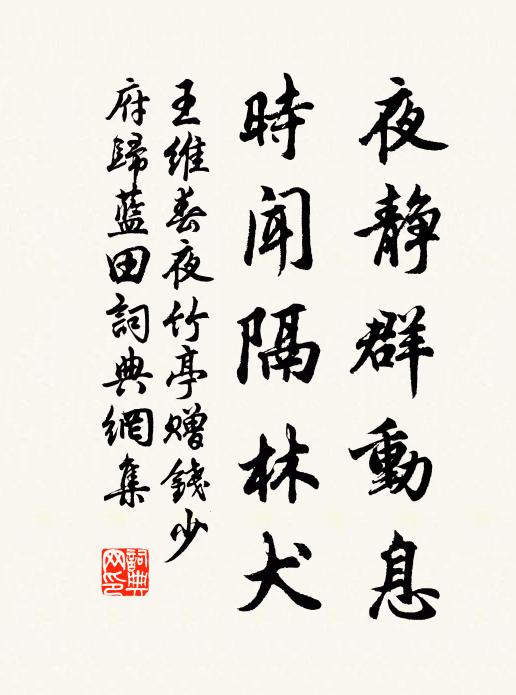 夜静群動息
時闻隔林犬
王維春夜竹亭赠錢少
府歸藍田詞典網集
詞典
网印